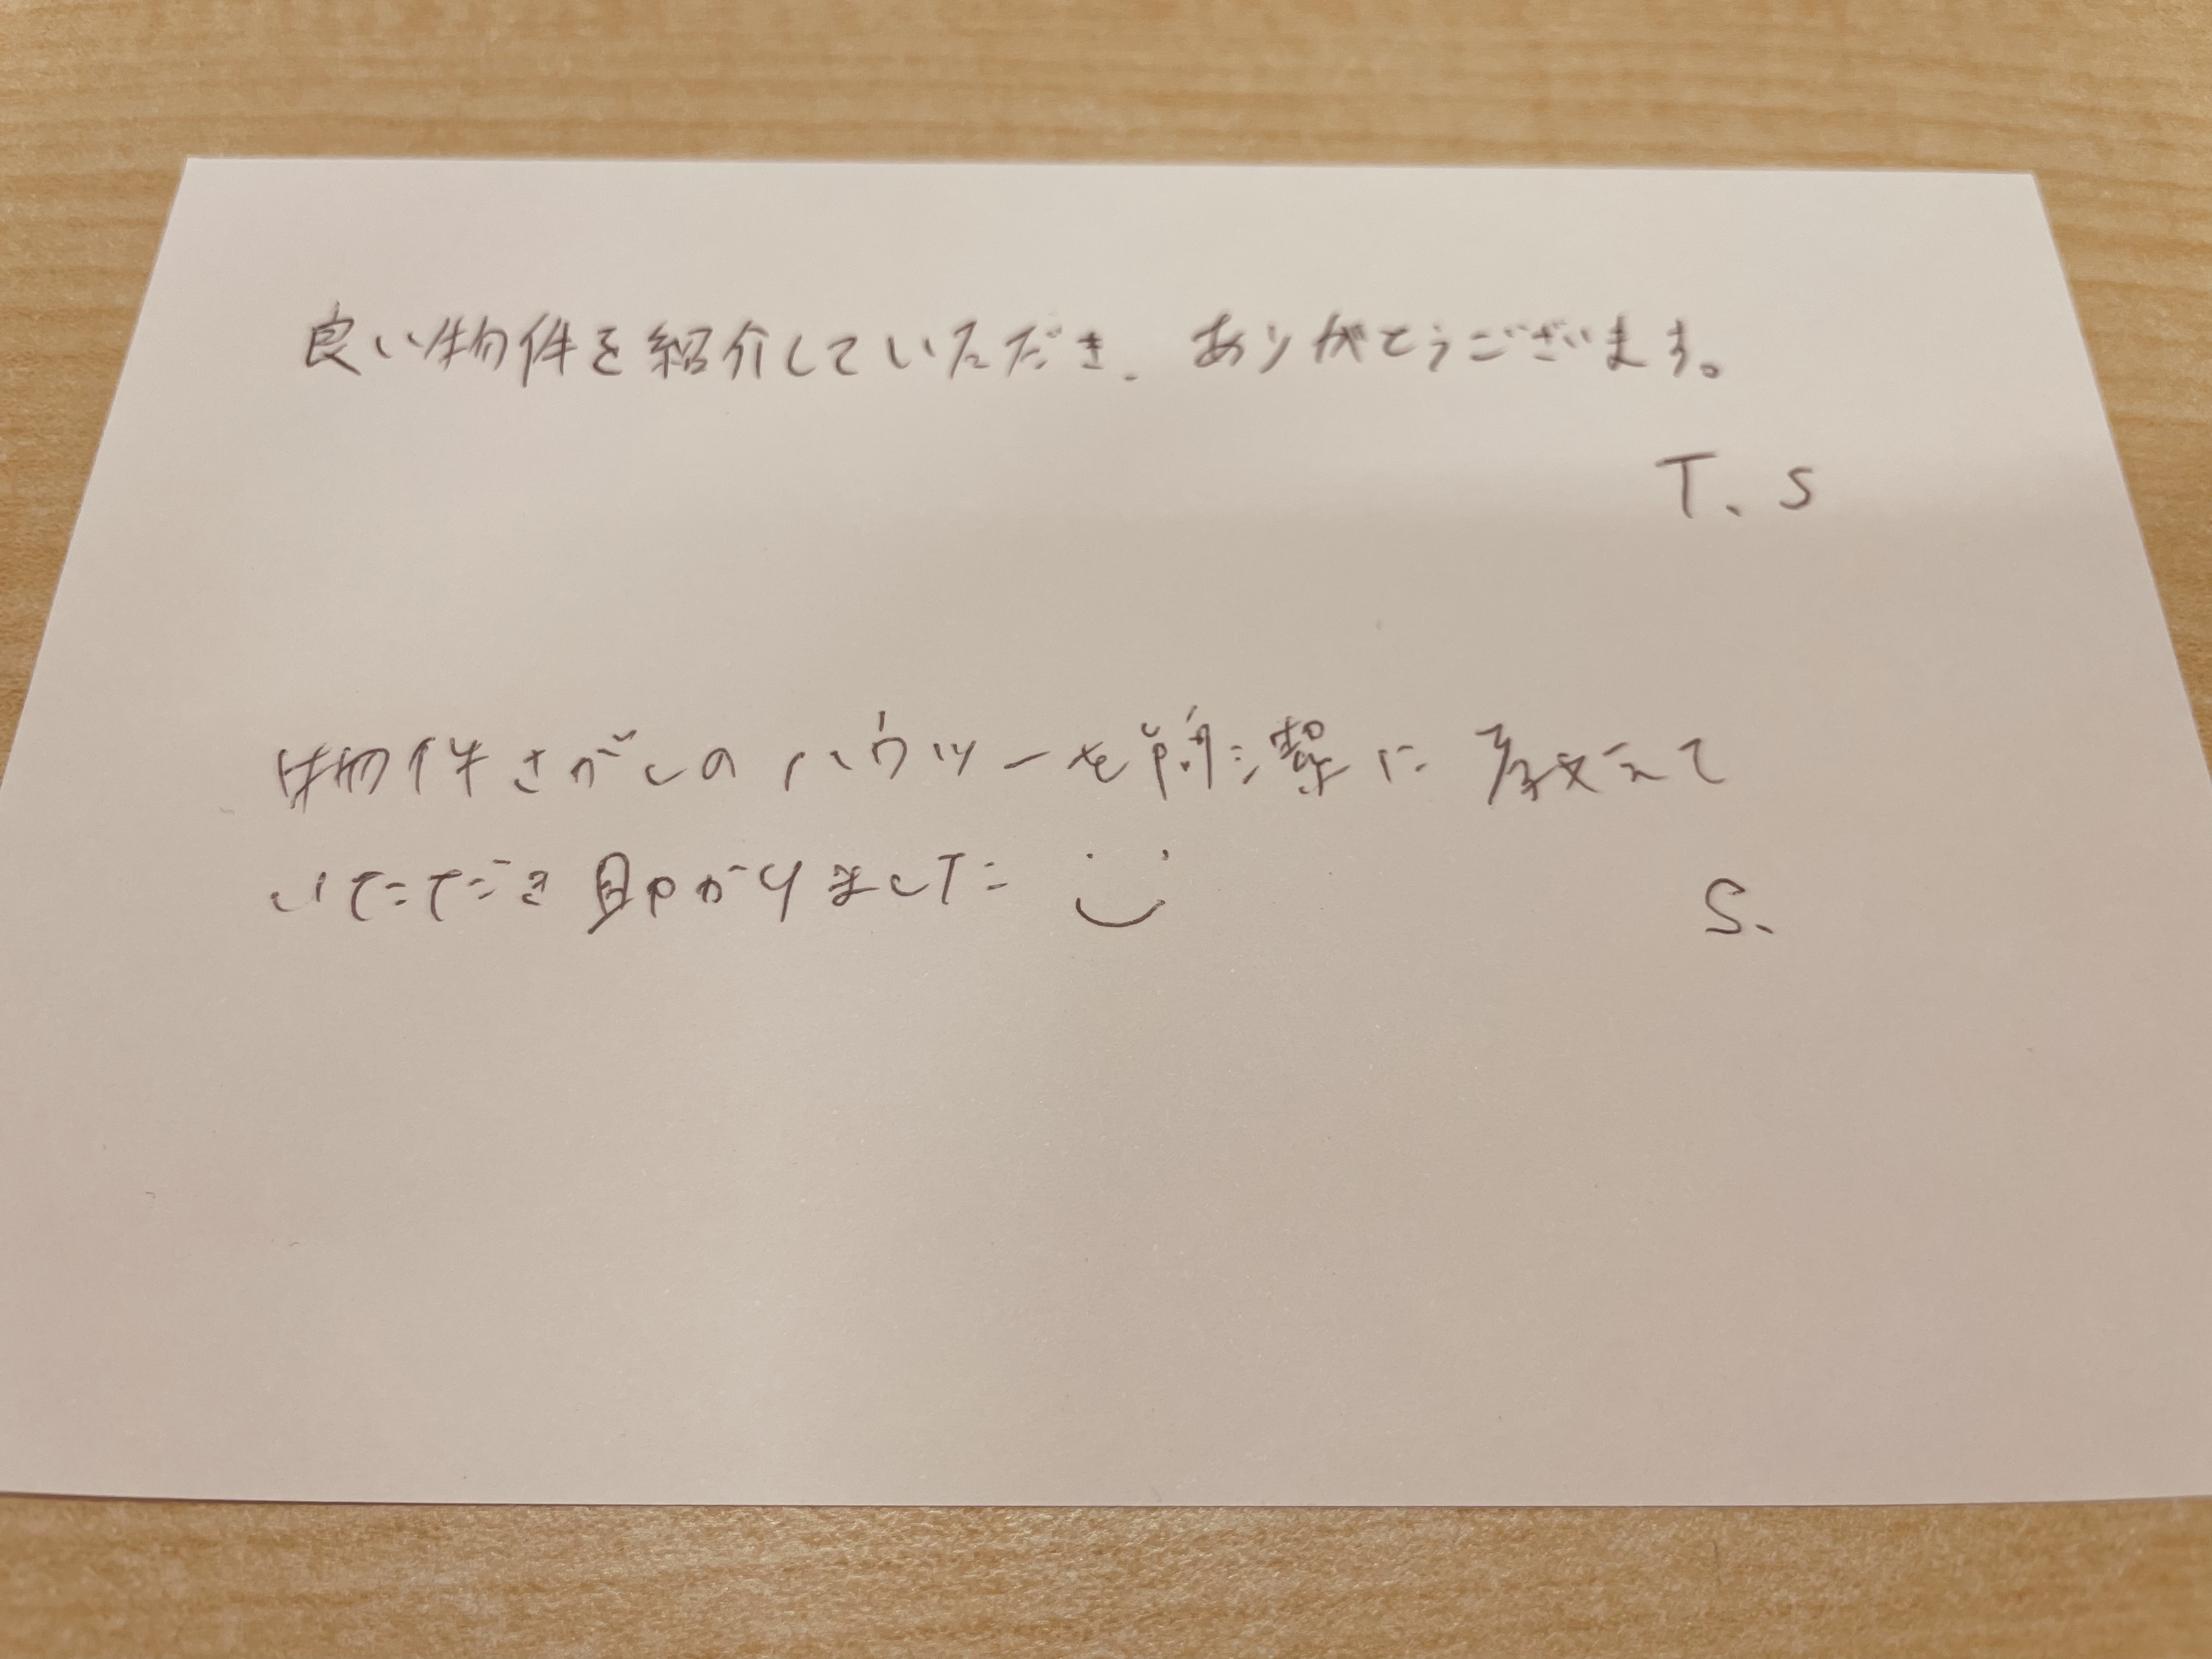 良い物件を紹介していただき、ありがとうございます。
T.S
物件さがしのハウツーを簡潔に教えて
いただき助かりました
S.